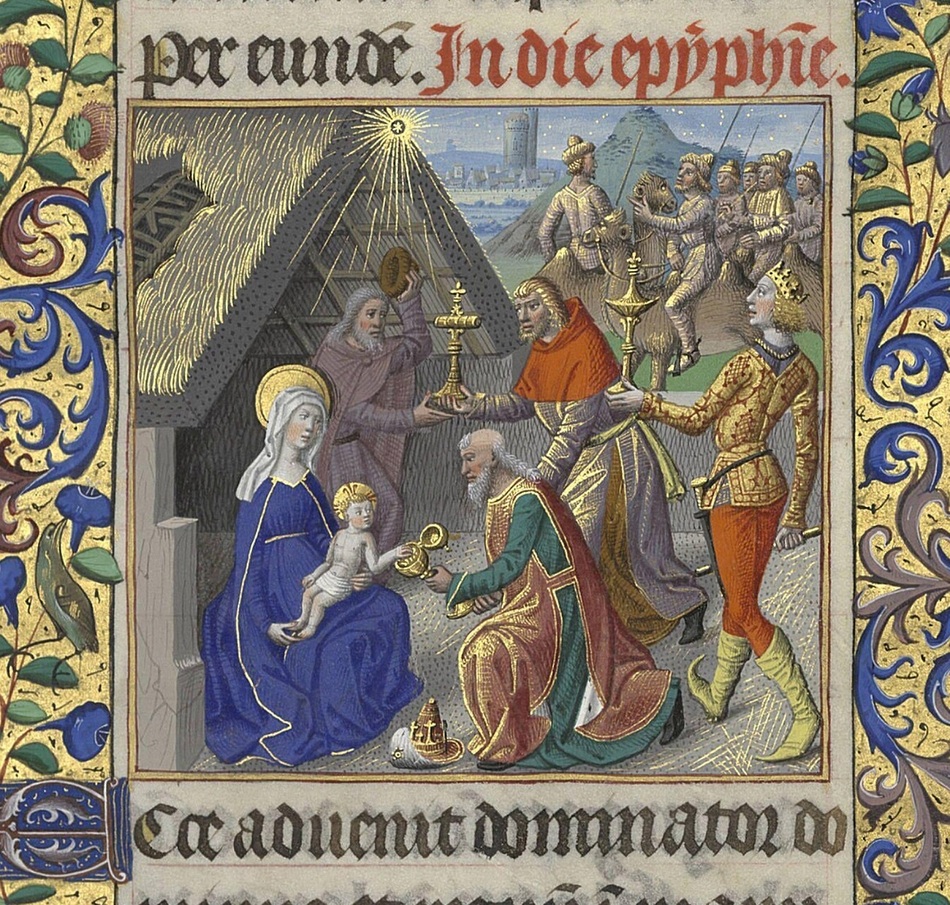 per eundē. In die epyphīe.
Ecce aduenit dominator do